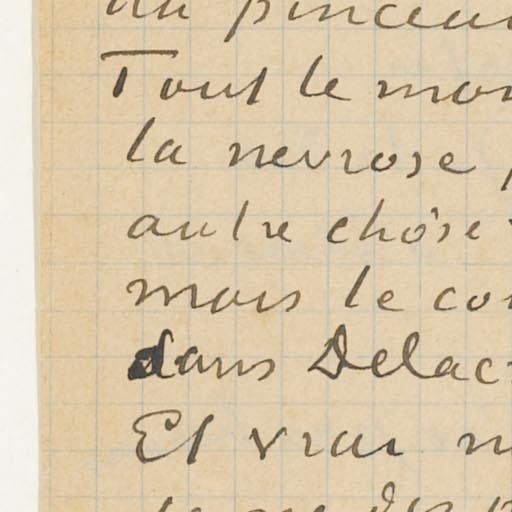 du pinceau
Tout le mon
la nevrose
autre chose
mais le co
dans Delac
Et vrai